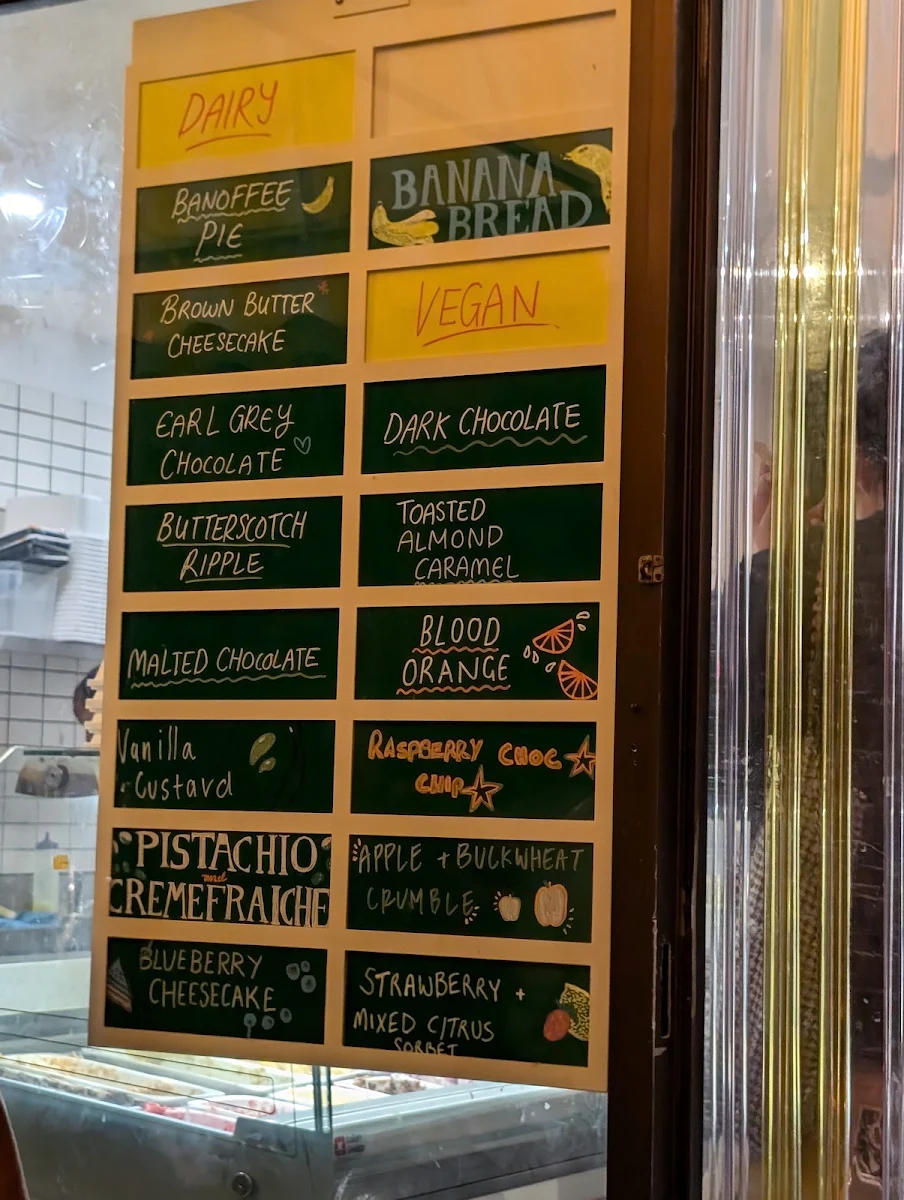 DAIRY
BANOFFEE
PIE
BROWN BUTTER
CHEESECAKE
EARL GREY
CHOCOLATE
BUTTERSCOTCH
RIPPLE
MALTED CHOCOLATE
Vanilla
Custard
PISTACHIO
and
CREMEFRAICHE
BLUEBERRY
CHEESECAKE
BANANA
BREAD
VEGAN
DARK CHOCOLATE
TOASTED
ALMOND
CARAMEL
BLOOD
ORANGE
RASPBERRY CHOC
CHIP
APPLE + BUCKWHEAT
CRUMBLE
STRAWBERRY +
MIXED CITRUS
SORBET